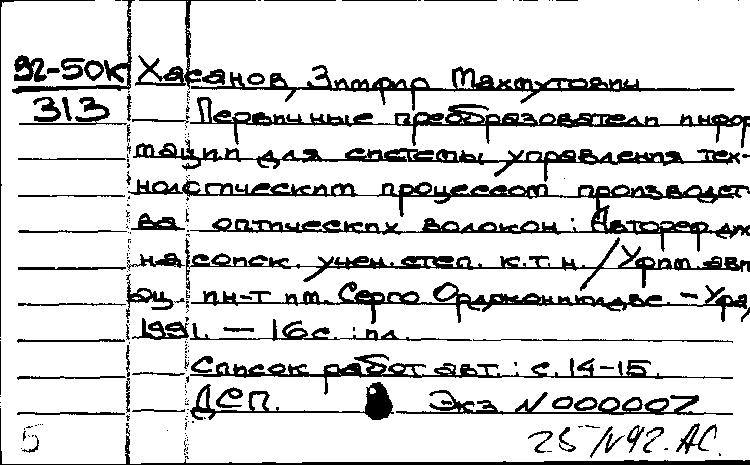 92-50К Хасанов, Зимфир Махмутович
313 Первичные преобразователи инфор
мации для системы управления тех-
нологическим процессом производст
ва оптических волокон : Автореф. дис
на соиск. учен. степ. к.т.н. / Уфим. ави
ац. ин-т им. Серго Орджоникидзе. - Уфа,
1991. — 16 с. : ил.
Список работ авт. : с. 14-15.
ДСП. Экз N 000007
5 25/IV 92. АС.